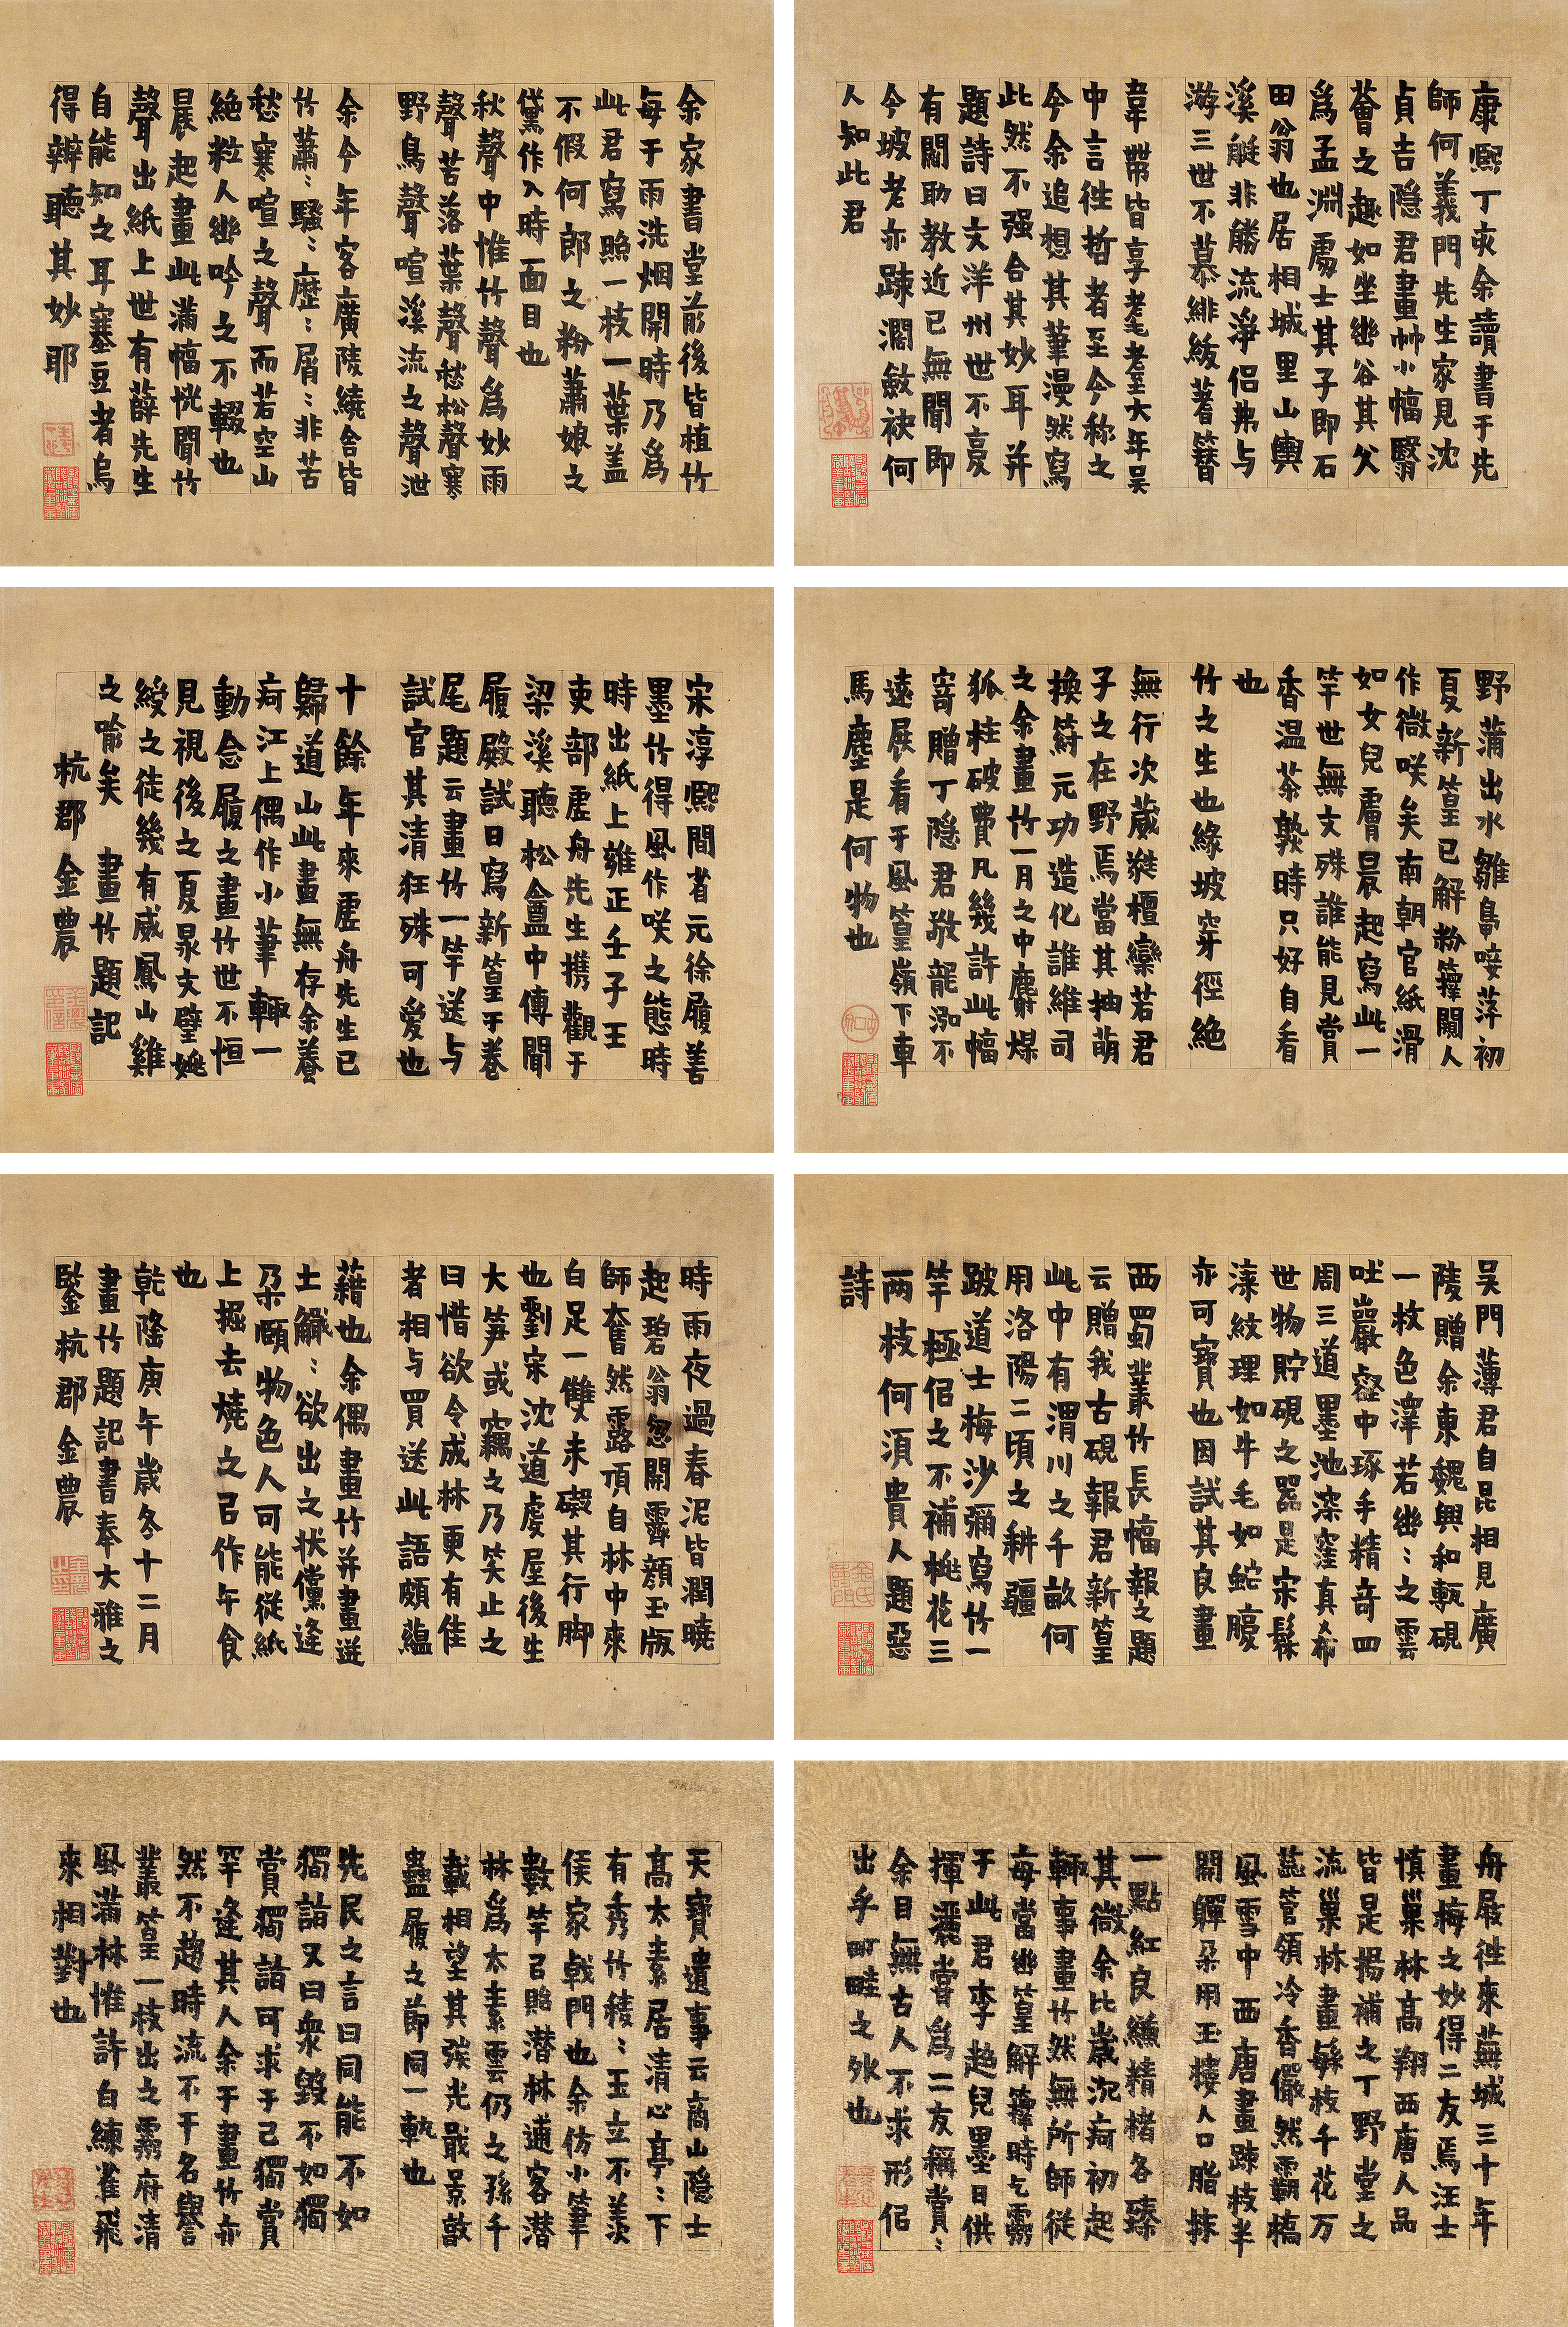 康熙丁亥余讀書于先
師何義門先生家見沈
貞吉隱君畫竹小幅翳
薈之趣如坐幽谷其父
為孟淵處士其子即石
田翁也居相城里山輿
溪艇非勝流淨侶弗与
游三世不慕緋紱著簪
韋帶皆享耄耋大年吳
中言徃哲者至今称之
今余追想其筆漫然寫
此然不强合其妙耳并
題詩曰文洋州世不憂
有閻助教近已無聞即
今坡老亦踈濶斂袂何
人知此君
余家書堂前後皆植竹
每于雨洗烟開時乃為
此君寫照一枝一葉盖
不假何郎之粉蕭娘之
黛作入時面目也
秋聲中惟竹聲為妙雨
聲苦落葉聲愁松聲寒
野鳥聲喧溪流之聲泄
余今年客廣陵繞舍皆
竹蕭:騷:歷:屑:非苦
愁寒喧之聲而若空山
絕粒人幽吟之不輟也
晨起畫此滿幅恍聞竹
聲出紙上世有薛先生
自能知之耳塞豆者烏
得辨聽其妙耶
野蒲出水雛鳧唼萍初
夏新篁已解粉籜闖人
作微咲矣南朝官紙滑
如女兒膚晨起寫此一
竿世無文殊誰能見賞
香温茶熟時只好自看
也
竹之生也緣坡穿徑絕
無行次葳蕤檀欒若君
子之在野焉當其抽萌
換籜元功造化誰維司
之余畫竹一月之中麝煤
狐柱破費凡幾許此幅
寄贈丁隱君敬龍泓不
遠展看于風篁嶺下車
馬塵是何物也
宋淳熙間省元徐履善
墨竹得風作咲之態時
時出紙上雍正壬子王
吏部虛舟先生携觀于
梁溪聽松盦中傳聞
履殿試日寫新篁于卷
尾題云畫竹一竿送与
試官其清狂殊可愛也
十餘年來虛舟先生已
歸道山此畫無存余養
疴江上偶作小筆輒一
動念履之畫竹世不恒
見視後之夏㫤文璧姚
綬之徒幾有威鳳山雞
之喻矣 畫竹題記
杭郡金農
吳門薄君自昆相見廣
陵贈余東魏興和甎硯
一枚色澤若幽:之雲
吐巖壑中琢手精奇四
周三道墨池深窪真希
世物貯硯之器是宋髹
漆紋理如牛毛如蛇腹
亦可寶也因試其良畫
西蜀叢竹長幅報之題
云贈我古硯報君新篁
此中有渭川之千畝何
用洛陽二頃之耕疆
跛道士梅沙彌寫竹一
竿極侶之不補桃花三
两枝何須貴人題惡
詩
時雨夜過春泥皆潤曉
起碧翁忽開霽顔玉版
師奮然露頂自林中來
白足一雙未礙其行脚
也劉宋沈道虔屋後生
大笋或竊之乃笑止之
曰惜欲令成林更有佳
者相与買送此語頗蘊
藉也余偶畫竹并畫迸
土觿:欲出之状儻逢
朶頤物色人可能從紙
上掘去燒之㠯作午食
也
乾隆庚午歲冬十二月
畫竹題記書奉大雅之
鑒杭郡金農
舟屐徃來蕪城三十年
畫梅之妙得二友焉汪士
慎巢林高翔西唐人品
皆是揚補之丁野堂之
流巢林畫緐枝千花万
蕊管領冷香儼然灞橋
風雪中西唐畫踈枝半
開軃朶用玉樓人口脂抹
一點紅良縑精楮各臻
其微余比歲沉疴初起
輒事畫竹然無所師從
每當幽篁解籜時乞霧
于此君李趙兒墨日供
揮灑嘗為二友稱賞:
余目無古人不求形侶
出乎町畦之外也
天寶遺事云商山隱士
高太素居清心亭:下
有秀竹稜:玉立不羨
侯家戟門也余仿小筆
數竿㠯貽潜林逋客潜
林為太素雲仍之孫千
載相望其裝光戢景敦
蠱履之節同一軌也
先民之言曰同能不如
獨詣又曰衆毀不如獨
賞獨詣可求于己獨賞
罕逢其人余于畫竹亦
然不趨時流不干名譽
叢篁一枝出之霧府清
風滿林惟許白練雀飛
來相對也